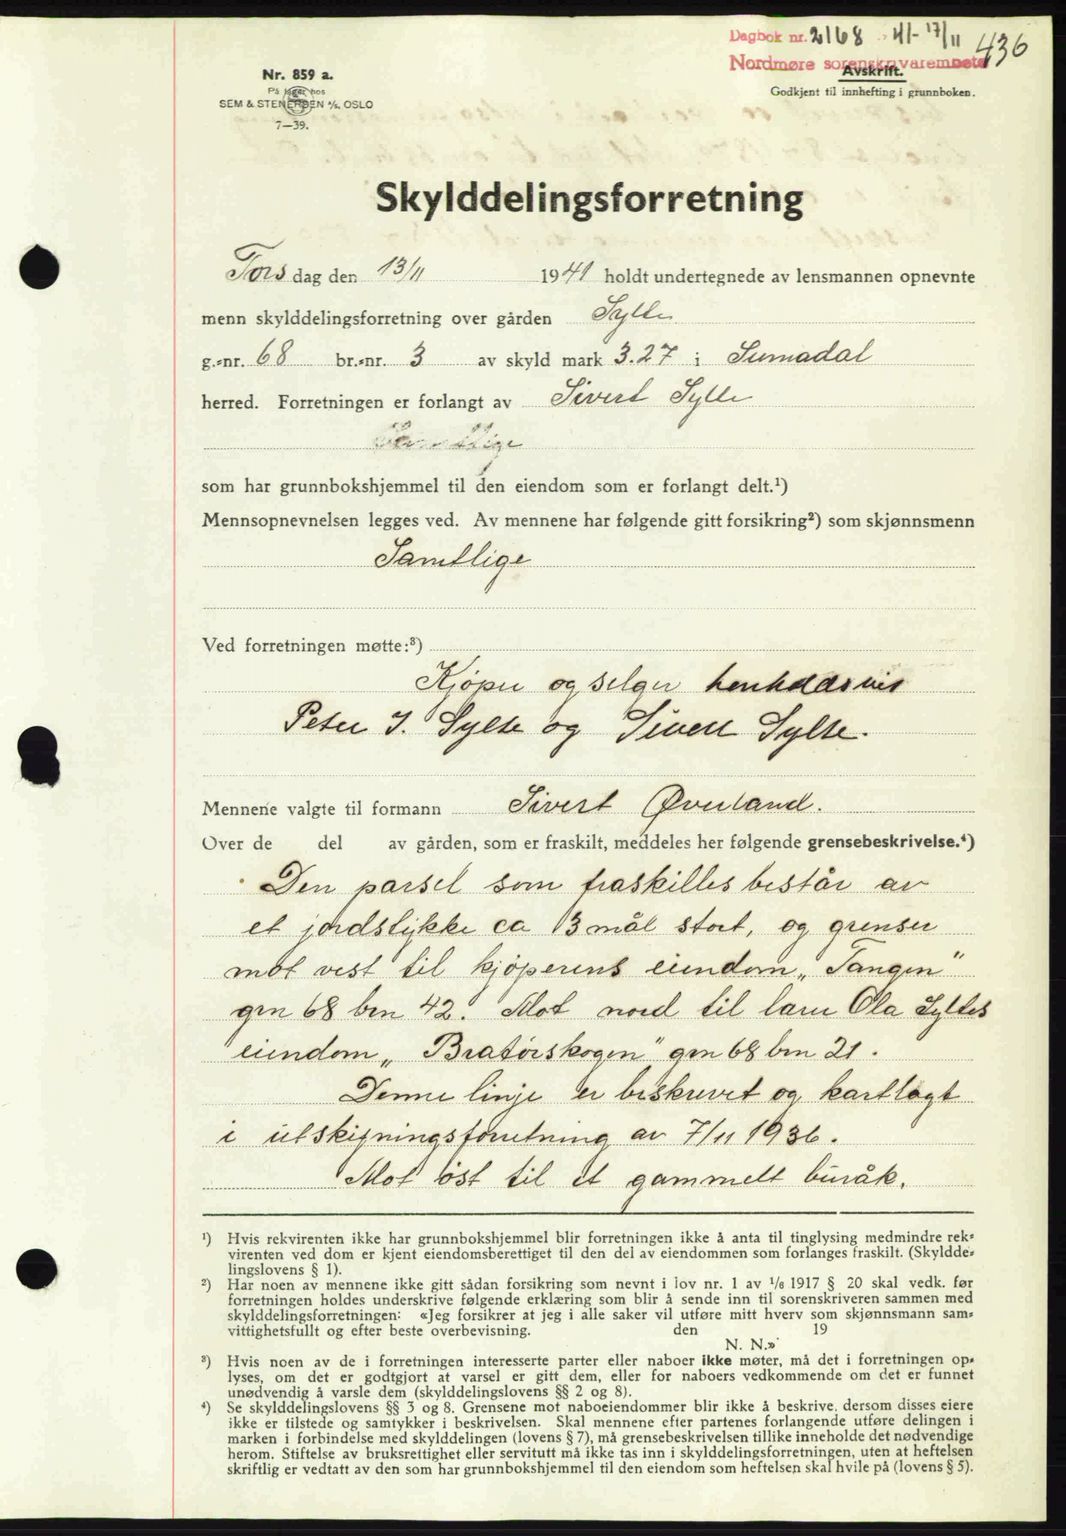 Dagbok nr. 2168 41-17/11 436
Nordmøre sorenskrivarembete
Avskrift.
Godkjent til innhefting i grunnboken.
Nr. 859 a.
På lager hos
SEM & STENERSEN A/S, OSLO
7—39.
Skylddelingsforretning
Torsdag den 13/11 1941 holdt undertegnede av lensmannen opnevnte
menn skylddelingsforretning over gården Sylte
g.-nr. 68 br.-nr. 3 av skyld mark 3.27 i Surnadal
herred. Forretningen er forlangt av Sivert Sylte
Samtlige
som har grunnbokshjemmel til den eiendom som er forlangt delt.¹)
Mennsopnevnelsen legges ved. Av mennene har følgende gitt forsikring²) som skjønnsmenn
Samtlige
Ved forretningen møtte:³)
Kjøper og selger henholdsvis
Peter J. Sylte og Sivert Sylte.
Mennene valgte til formann Sivert Øverland.
Over de del av gården, som er fraskilt, meddeles her følgende grensebeskrivelse.⁴)
Den parsel som fraskilles består av
et jordstykke ca 3 mål stort, og grenser
mot vest til kjøperens eiendom „Tangen"
grn 68 brn 42. Mot nord til Ola Syltes
eiendom „Bratørskogen" grn 68 brn 21.
Denne linje er beskrevet og kartlagt
i utskiftningsforretning av 7/11 1936.
Mot øst til et gammelt buråk.
¹) Hvis rekvirenten ikke har grunnbokshjemmel blir forretningen ikke å anta til tinglysing medmindre rek-
virenten ved dom er kjent eiendomsberettiget til den del av eiendommen som forlanges fraskilt. (Skyldde-
lingslovens § 1).
²) Har noen av mennene ikke gitt sådan forsikring som nevnt i lov nr. 1 av 1/6 1917 § 20 skal vedk. før
forretningen holdes underskrive følgende erklæring som blir å sende inn til sorenskriveren sammen med
skylddelingsforretningen: «Jeg forsikrer at jeg i alle saker vil utføre mitt hverv som skjønnsmann sam-
vittighetsfullt og efter beste overbevisning. den 19
N. N.»
³) Hvis noen av de i forretningen interesserte parter eller naboer ikke møter, må det i forretningen op-
lyses, om det er godtgjort at varsel er gitt dem, eller for naboers vedkommende om det er funnet
unødvendig å varsle dem (skylddelingslovens §§ 2 og 8).
⁴) Se skylddelingslovens §§ 3 og 8. Grensene mot naboeiendommer blir ikke å beskrive, dersom disses eiere
ikke er tilstede og samtykker i beskrivelsen. Skal mennene efter partenes forlangende utføre delingen i
marken i forbindelse med skylddelingen (lovens § 7), må grensebeskrivelsen tillike inneholde det nødvendige
herom. Stiftelse av bruksrettighet eller servitutt må ikke tas inn i skylddelingsforretningen, uten at heftelsen
skriftlig er vedtatt av den som har grunnbokshjemmel til den eiendom som heftelsen skal hvile på (lovens § 5).